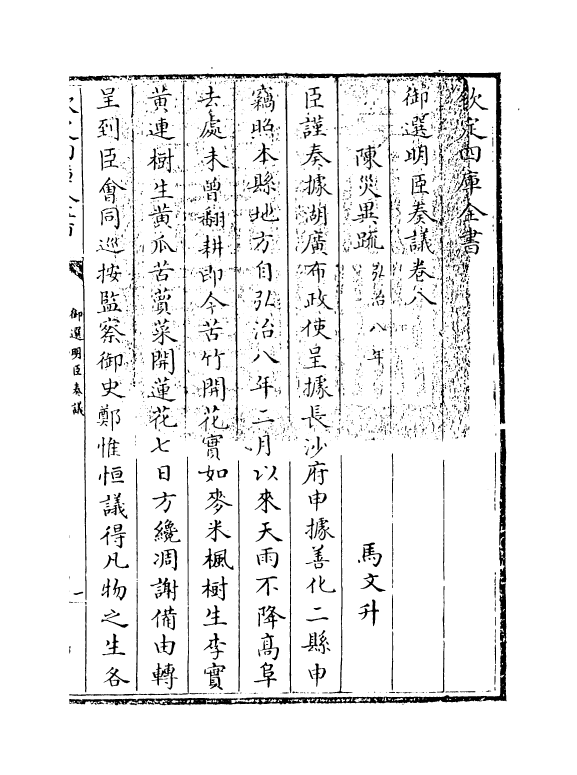 欽定四庫全書
御選明臣奏議卷八
陳災異疏弘治八年 馬文升
臣謹奏據湖廣布政使呈據長沙府申據善化二縣申
竊照本縣地方自弘治八年二月以來天雨不降高阜
去處未曾翻耕即今苦竹開花實如麥米楓樹生李實
黄連樹生黄瓜苦蕒菜開蓮花七日方纔凋謝備由轉
呈到臣會同巡按監察御史鄭惟恒議得凡物之生各
御選明臣奏議
一